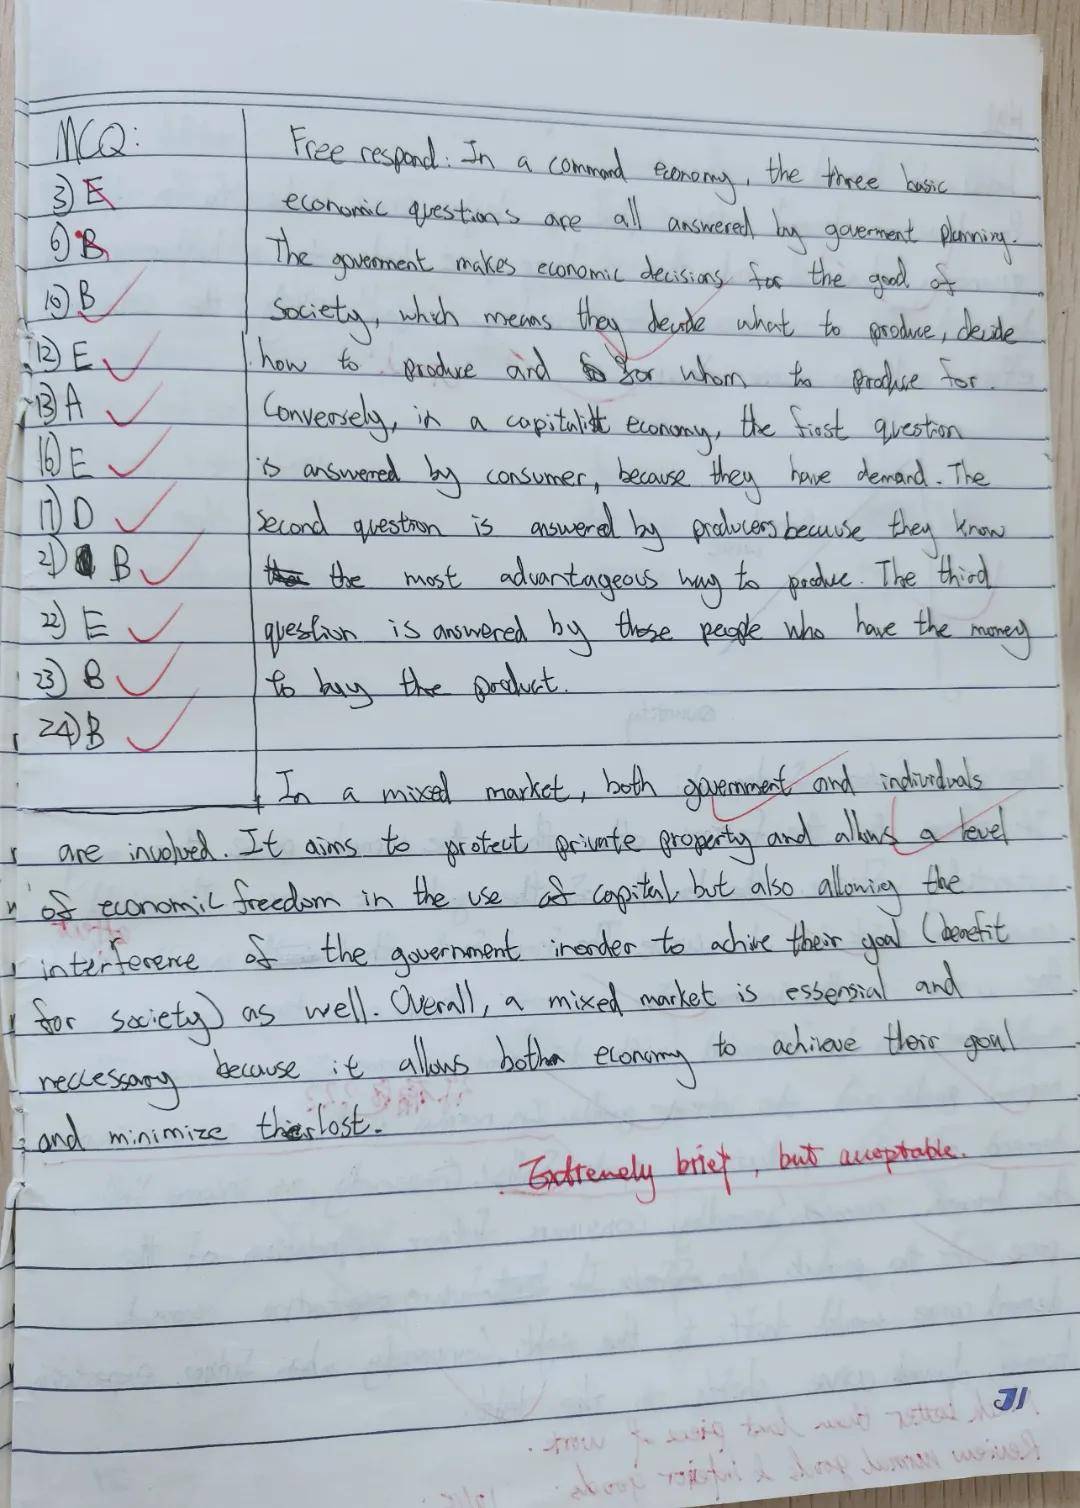 MCQ:
3) E
6) B
10) B
12) E
13) A
16) E
17) D
21) B
22) E
23) B
24) B
Free respond: In a command economy, the three basic
economic questions are all answered by goverment planning.
The government makes economic decisions for the good of
society, which means they decide what to produce, decide
how to produce and for whom to produce for.
Conversely, in a capitalist economy, the first question
is answered by consumer, because they have demand. The
second question is answered by producers because they know
the most advantageous way to produce. The third
question is answered by those people who have the money
to buy the product.
In a mixed market, both government and individuals
are involved. It aims to protect private property and allows a level
of economic freedom in the use of capital, but also allowing the
interference of the government inorder to achive their goal (benefit
for society) as well. Overall, a mixed market is essensial and
neccessary because it allows both economy to achieve their goal
and minimize their lost.
Extremely brief, but acceptable.